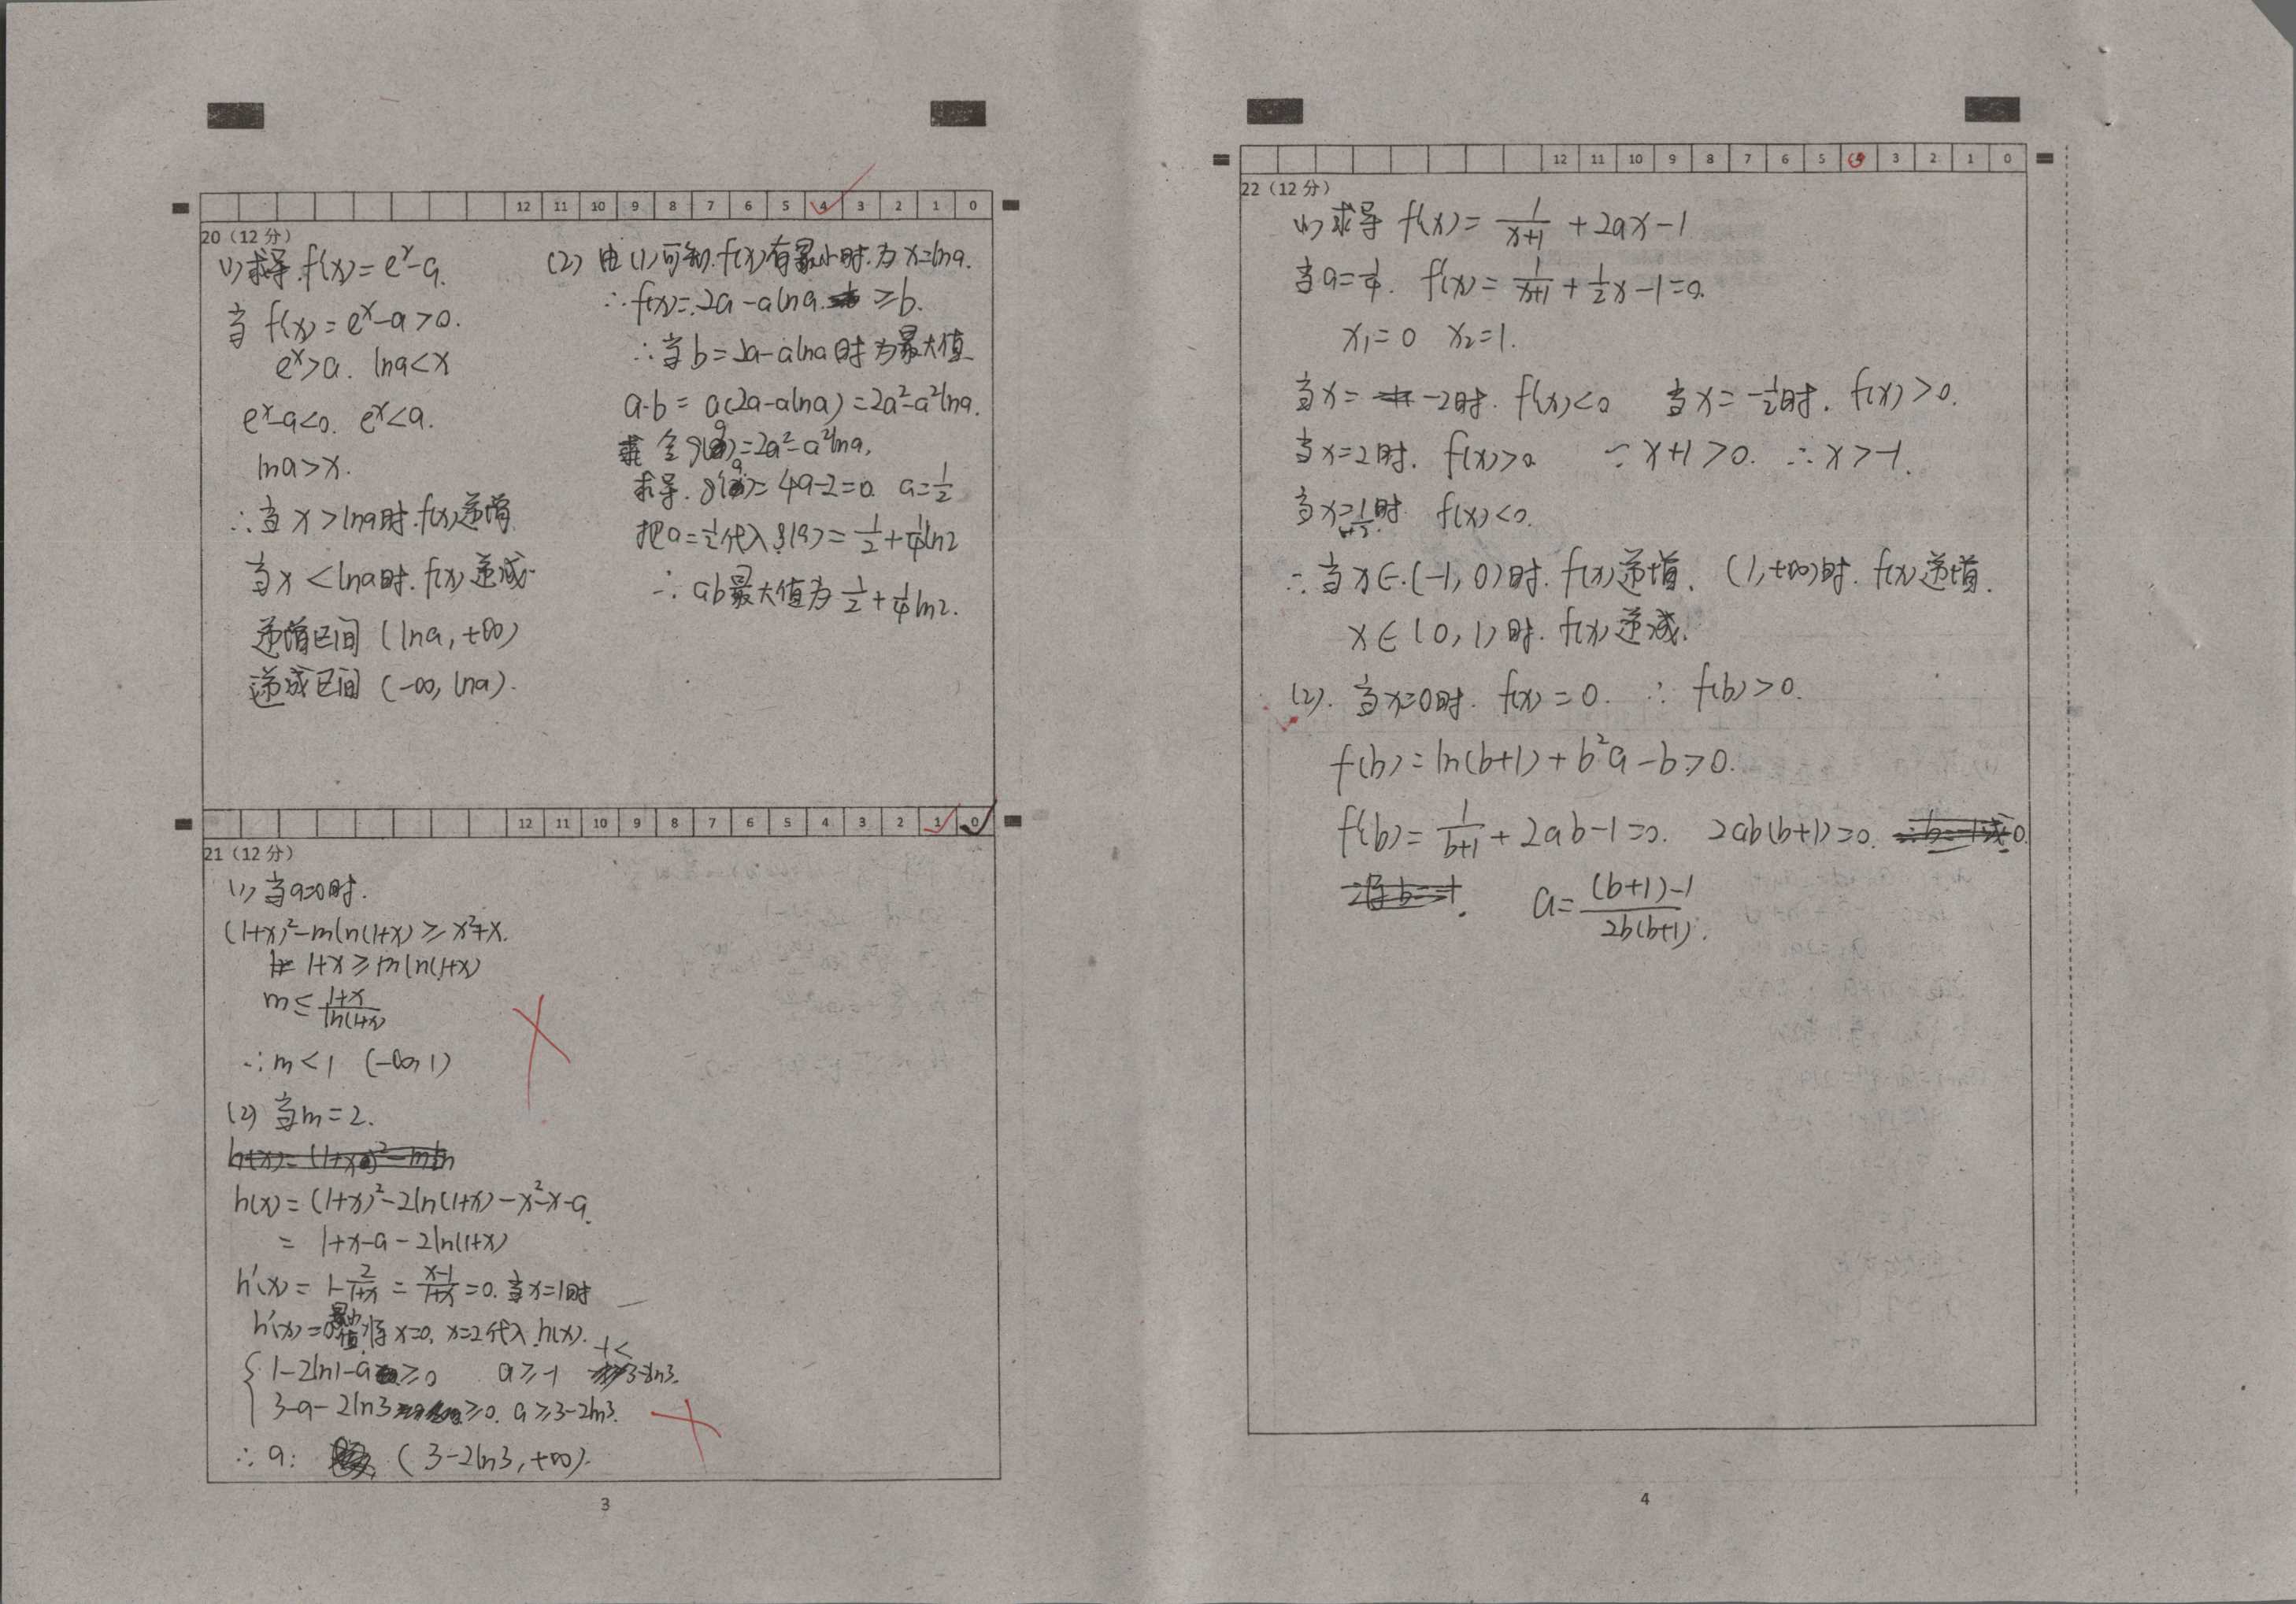 12 11 10 9 8 7 6 5 4 3 2 1 0
20（12 分）
(1) 求导. f'(x) = e^x - a.
当 f'(x) = e^x - a > 0.
e^x > a. lna < x
e^x - a < 0. e^x < a.
lna > x.
∴ 当 x > lna 时. f(x) 递增.
当 x < lna 时. f(x) 递减.
递增区间 (lna, +∞)
递减区间 (-∞, lna).
(2) 由 (1) 可知. f(x) 有最小时. 为 x = lna.
∴ f(x) = 2a - alna ≥ b.
∴ 当 b = 2a - alna 时 为最大值
a·b = a(2a - alna) = 2a² - a²lna.
令 g(a) = 2a² - a²lna,
求导. g'(a) = 4a - 2 = 0. a = 1/2
把 a = 1/2 代入 g(a) = 1/2 + 1/4 ln2
∴ ab 最大值为 1/2 + 1/4 ln2.
12 11 10 9 8 7 6 5 4 3 2 1 0
21（12 分）
(1) 当 a=0 时.
(1+x)² - mln(1+x) ≥ x²+x.
1+x ≥ mln(1+x)
m ≤ (1+x)/ln(1+x)
∴ m < 1 (-∞, 1)
(2) 当 m = 2.
h(x) = (1+x)² - 2ln(1+x) - x² - x - a.
= 1+x-a - 2ln(1+x)
h'(x) = 1 - 2/(1+x) = (x-1)/(1+x) = 0. 当 x=1 时
h'(x) = 0 最小值. 将 x=0, x=2 代入 h(x).
{ 1 - 2ln1 - a ≥ 0 a ≥ -1
3 - a - 2ln3 ≥ 0. a ≥ 3 - 2ln3.
∴ a: (3 - 2ln3, +∞).
3
12 11 10 9 8 7 6 5 3 2 1 0
22（12 分）
(1) 求导 f'(x) = 1/(x+1) + 2ax - 1
当 a = 1/4. f'(x) = 1/(x+1) + 1/2 x - 1 = 0.
x₁ = 0 x₂ = 1.
当 x = -2 时. f'(x) < 0 当 x = -1/2 时. f'(x) > 0.
当 x = 2 时. f'(x) > 0 ∵ x+1 > 0. ∴ x > -1.
当 x = 1/2 时 f'(x) < 0.
∴ 当 x ∈ (-1, 0) 时. f(x) 递增. (1, +∞) 时. f(x) 递增.
x ∈ (0, 1) 时. f(x) 递减.
(2). 当 x=0 时. f(x) = 0. ∴ f(b) > 0.
f(b) = ln(b+1) + b²a - b > 0.
f'(b) = 1/(b+1) + 2ab - 1 = 0. 2ab(b+1) = 0.
a = ((b+1) - 1)/(2b(b+1)).
4